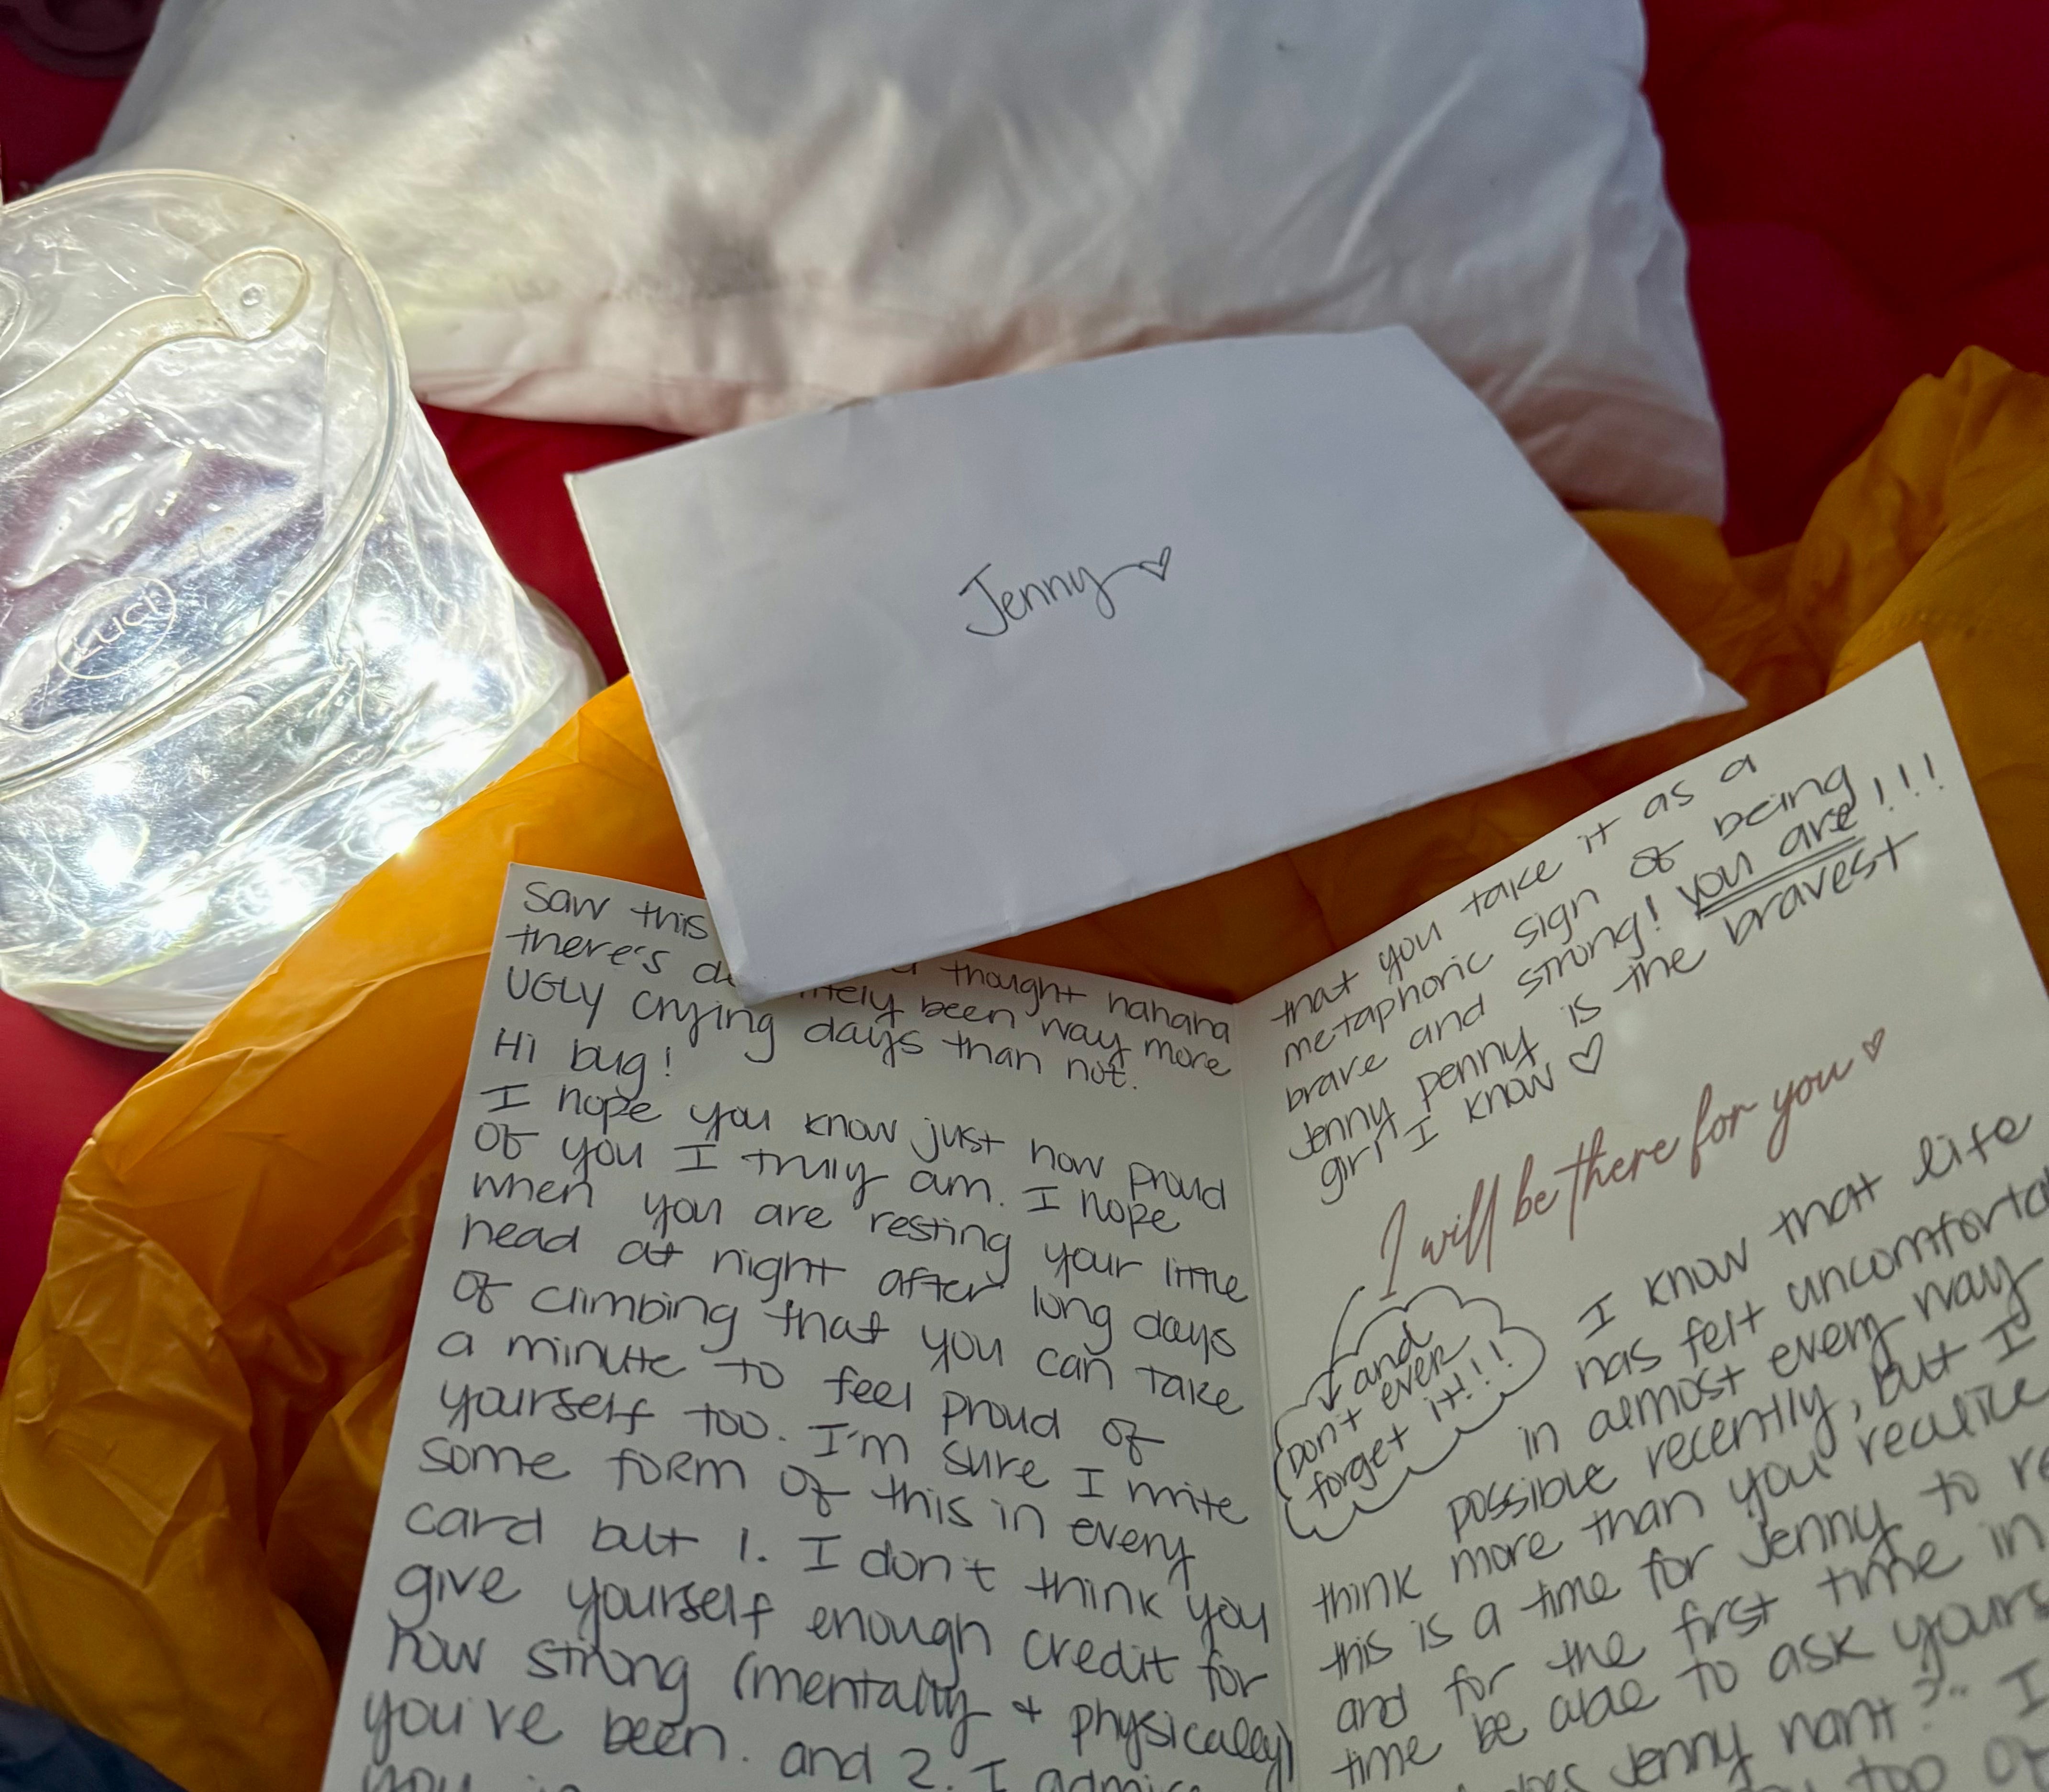 Luci
Jenny
saw this
thought hahaha
there's
been way more
UGLY crying days than not.
Hi bug!
I hope you know just how proud
of you I truly am. I hope
when you are resting your little
head at night after long days
of climbing that you can take
a minute to feel proud of
yourself too. I'm sure I write
some form of this in every
card but 1. I don't think you
give yourself enough credit for
how strong (mentally + physically)
you've been. and 2. I
that you take it as a
metaphoric sign of being
brave and strong! you are!!!
Jenny penny is the bravest
girl I know
I will be there for you
and
don't ever
forget it!!!
I know that life
has felt
in almost every way
possible recently, but I
think more than you realize
this is a time for Jenny to
and for the first time in
time be able to ask
Jenny want?" I
too of